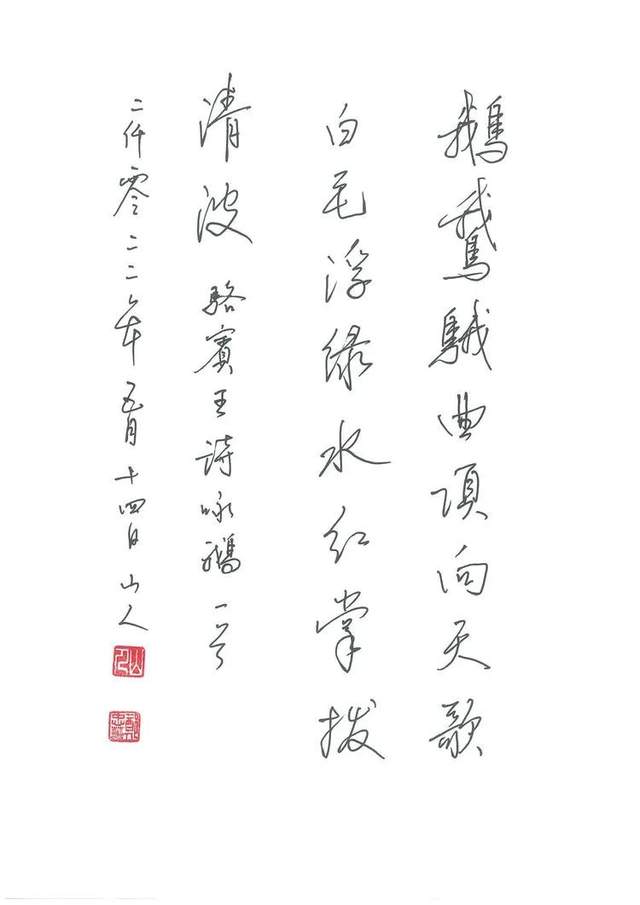 鵝䳘䳗曲項向天歌
白毛浮绿水红掌拨
清波 駱賓王詩咏鵝一首
二仟零二二年五月十四日山人
山人